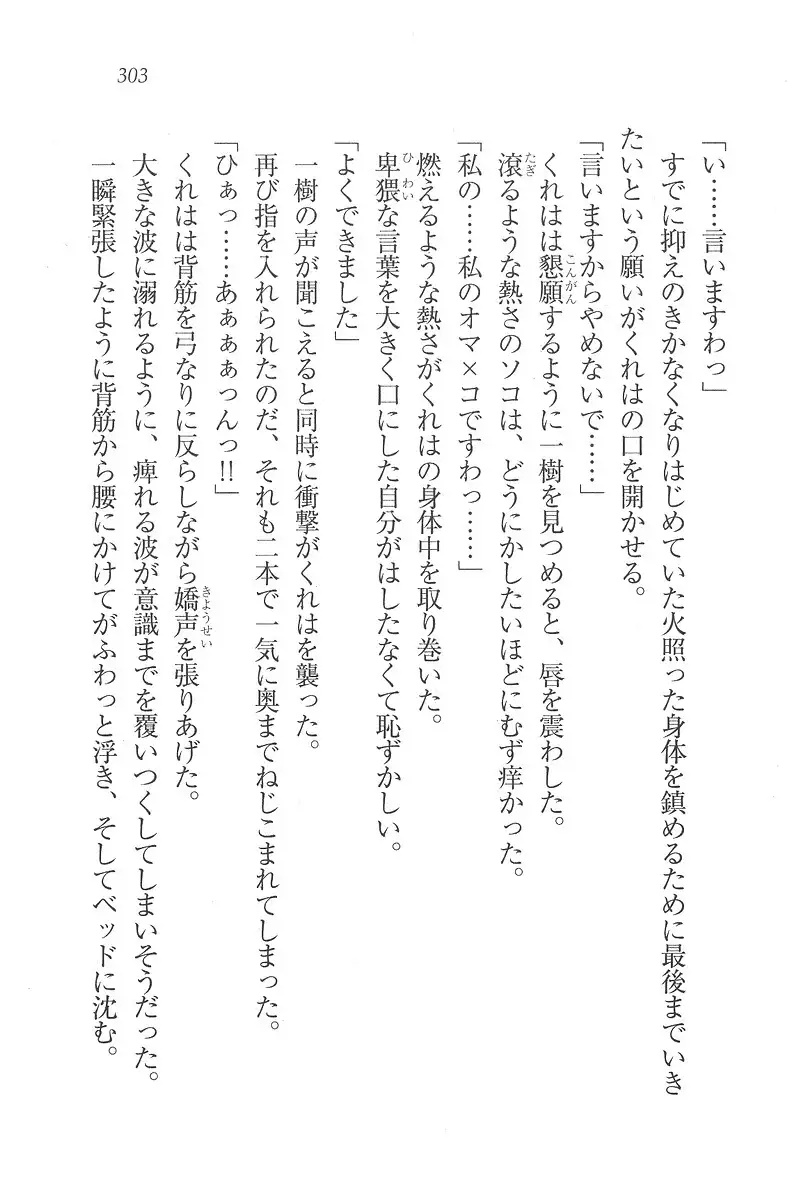 303
「い……言いますわっ」
すでに抑えのきかなくなりはじめていた火照った身体を鎮めるために最後までいき
たいという願いがくれはの口を開かせる。
「言いますからやめないで……」
こんがん
くれはは懇願するように一樹を見つめると、唇を震わした。
たぎ
滾るような熱さのソコは、どうにかしたいほどにむず痒かった。
「私の……私のオマ×コですわっ……」
燃えるような熱さがくれはの身体中を取り巻いた。
ひわい
卑猥な言葉を大きく口にした自分がはしたなくて恥ずかしい。
「よくできました」
一樹の声が聞こえると同時に衝撃がくれはを襲った。
再び指を入れられたのだ、それも二本で一気に奥までねじこまれてしまった。
「ひぁっ……あぁぁぁっんっ!!」
きようせい
くれはは背筋を弓なりに反らしながら嬌声を張りあげた。
大きな波に溺れるように、痺れる波が意識までを覆いつくしてしまいそうだった。
一瞬緊張したように背筋から腰にかけてがふわっと浮き、そしてベッドに沈む。